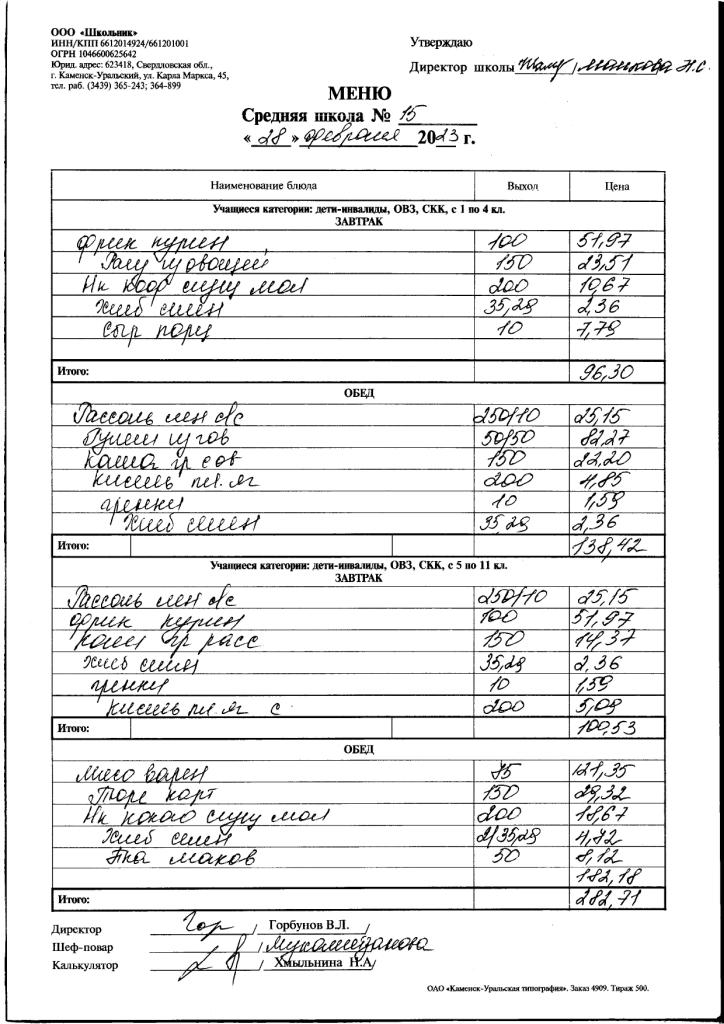 ООО «Школьник»
ИНН/КПП 6612014924/661201001
ОГРН 1046600625642
Юрид. адрес: 623418, Свердловская обл.,
г. Каменск-Уральский, ул. Карла Маркса, 45,
тел. раб. (3439) 365-243; 364-899
Утверждаю
Директор школы / Манкова Н.С.
МЕНЮ
Средняя школа № 15
« 28 » февраля 2023 г.
Наименование блюда Выход Цена
Учащиеся категории: дети-инвалиды, ОВЗ, СКК, с 1 по 4 кл.
ЗАВТРАК
Фрик курин 100 51,97
Рагу из овощей 150 23,51
Нк кофр сгущ мол 200 10,67
Хлеб смен 35,28 2,36
Сыр порц 10 7,79
Итого: 96,30
ОБЕД
Рассоль лен м/с 250/10 25,15
Гуляш из гов 50/50 82,27
Каша гр с ов 150 22,20
Кисель пл. яг 200 4,85
гренки 10 1,59
Хлеб смен 35,28 2,36
Итого: 138,42
Учащиеся категории: дети-инвалиды, ОВЗ, СКК, с 5 по 11 кл.
ЗАВТРАК
Рассоль лен м/с 250/10 25,15
Фрик курин 100 51,97
Каша гр расс 150 14,37
Хлеб смен 35,28 2,36
гренки 10 1,59
Кисель пл. яг с 200 5,09
Итого: 100,53
ОБЕД
Мясо варен 75 121,35
Пюре карт 150 29,32
Нк какао сгущ мол 200 18,67
Хлеб смен 2/35,28 4,72
маков 50 8,12
182,18
Итого: 282,71
Директор / Горбунов В.Л. /
Шеф-повар /
Калькулятор / Хмыльнина Н.А/
ОАО «Каменск-Уральская типография». Заказ 4909. Тираж 500.